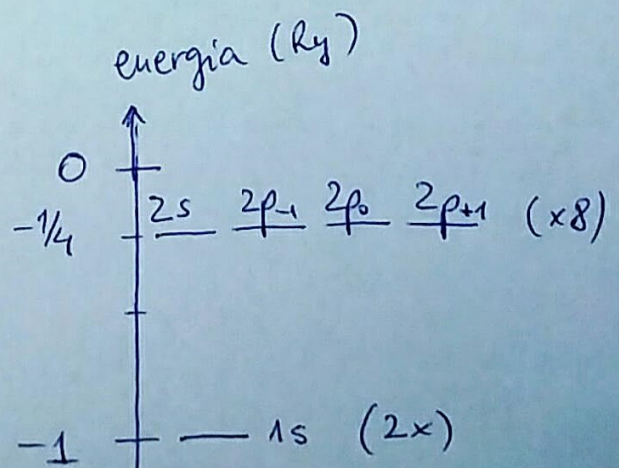 energia (Ry)
0
-1/4 2s 2p-1 2p0 2p+1 (x8)
-1 1s (2x)